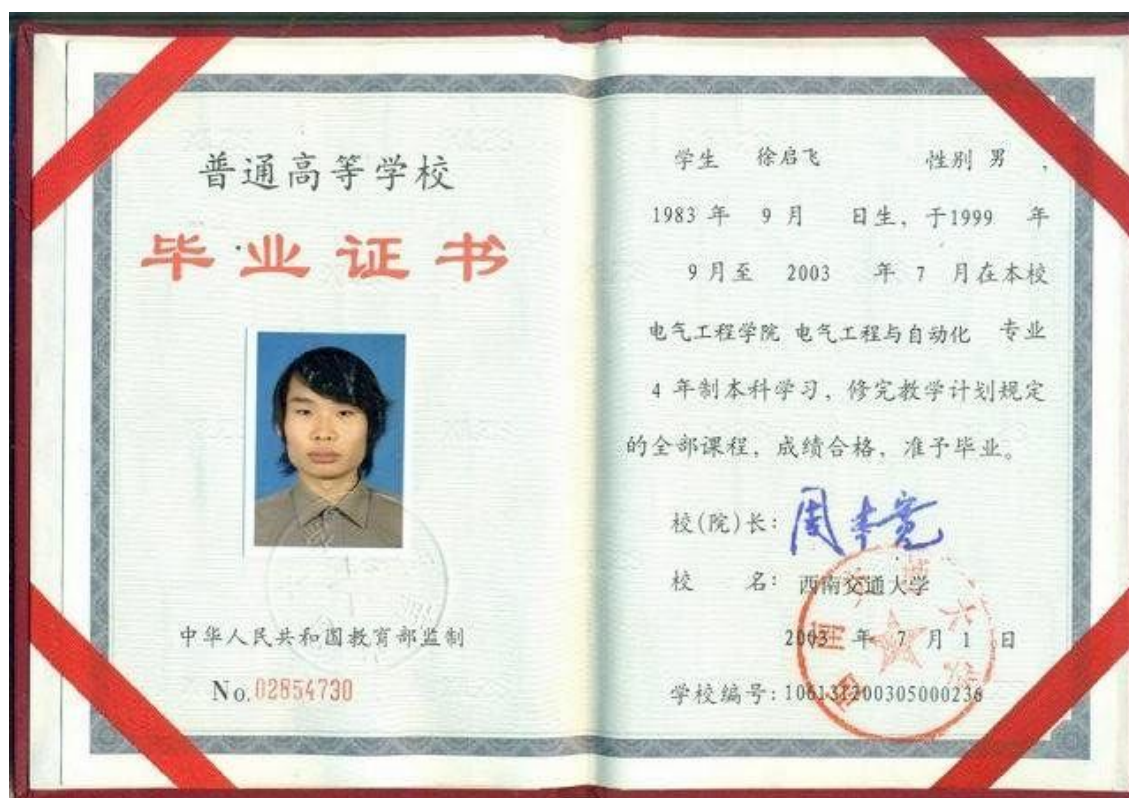 普通高等学校
毕业证书
中华人民共和国教育部监制
No.02854730
学生 徐启飞 性别 男，
1983 年 9 月 日生，于1999 年
9 月至 2003 年 7 月在本校
电气工程学院 电气工程与自动化 专业
4 年制本科学习，修完教学计划规定
的全部课程，成绩合格，准予毕业。
校(院)长：周本宽
校 名：西南交通大学
2003 年 7 月 1 日
学校编号：106131200305000236